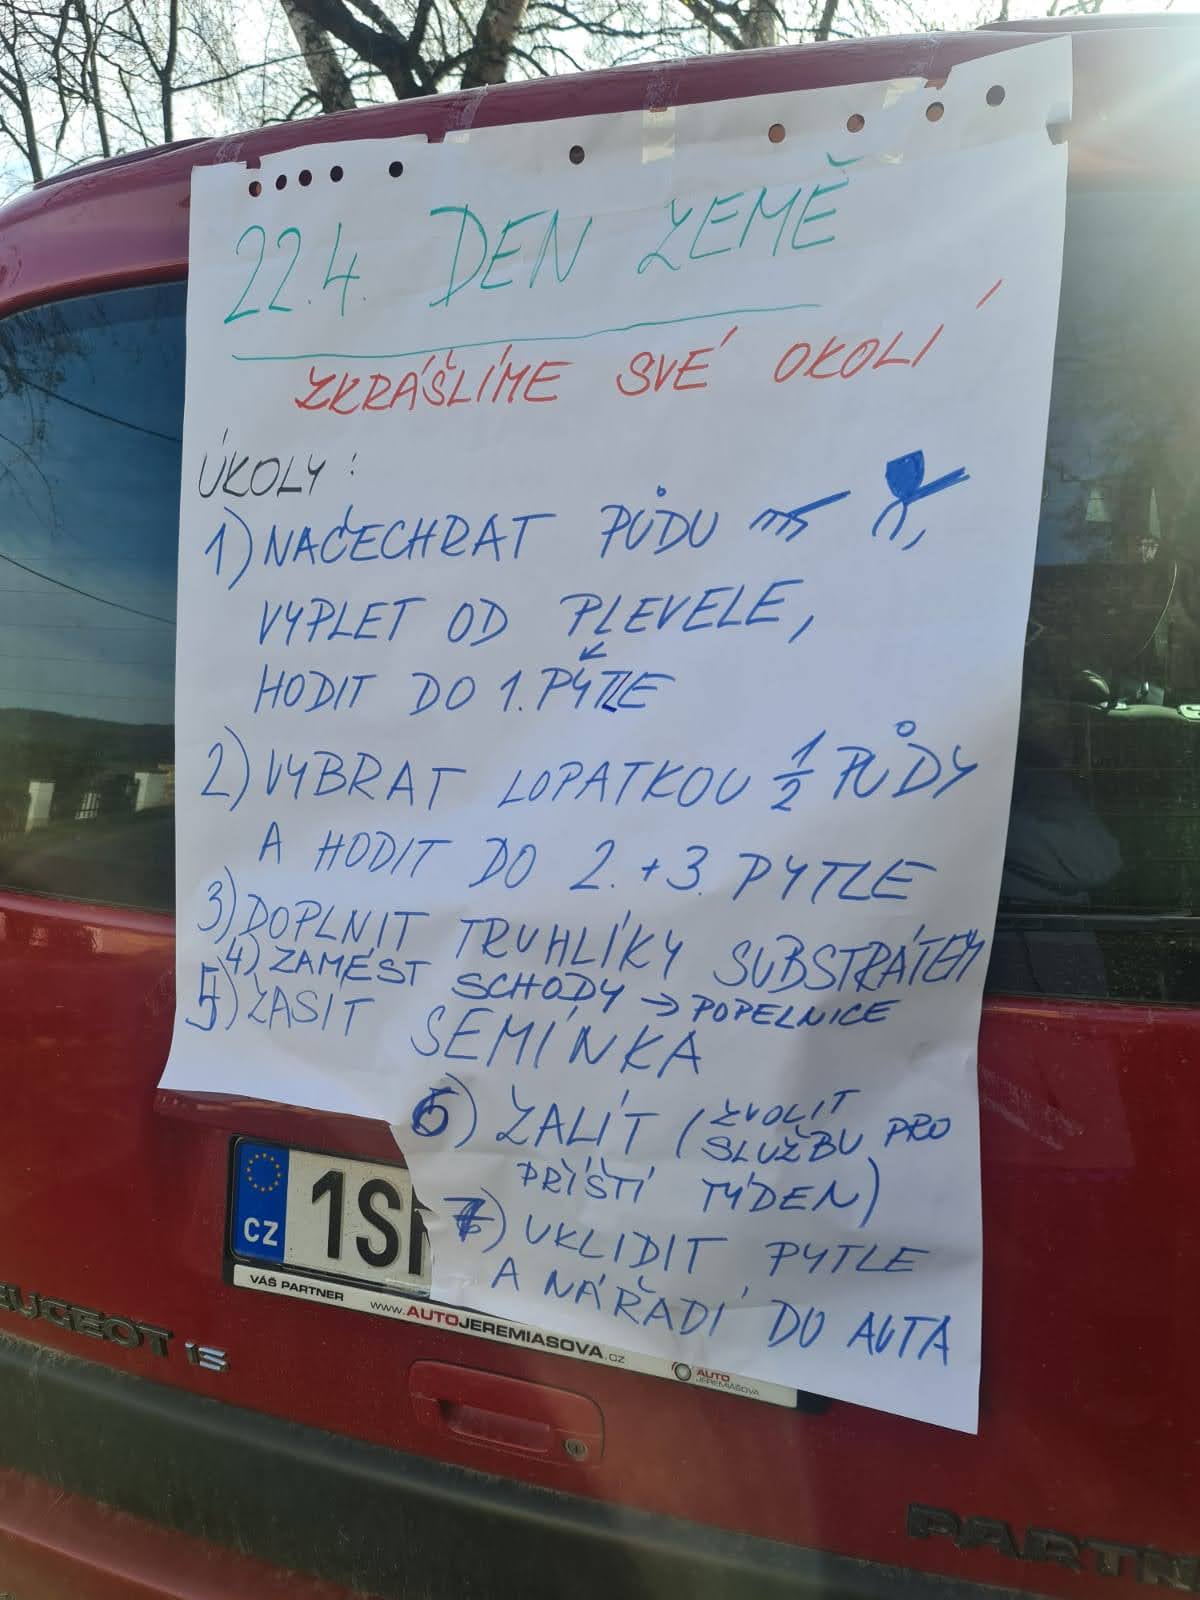 22.4. DEN ZEMĚ
ZKRÁŠLÍME SVÉ OKOLÍ
ÚKOLY:
1) NAČECHRAT PŮDU ,
VYPLET OD PLEVELE,
HODIT DO 1. PYTLE
2) VYBRAT LOPATKOU 1/2 PŮDY
A HODIT DO 2. + 3. PYTLE
3) DOPLNIT TRUHLÍKY SUBSTRÁTEM
4) ZAMÉST SCHODY → POPELNICE
5) ZASÍT SEMÍNKA
6) ZALÍT (ZVOLIT
SLUŽBU PRO
PŘÍŠTÍ TÝDEN)
7) UKLIDIT PYTLE
A NÁŘADÍ DO AUTA
CZ 1S
VÁŠ PARTNER www.AUTOJEREMIASOVA.cz
AUTO
JEREMIÁŠOVA
EUGEOT is
PARTN